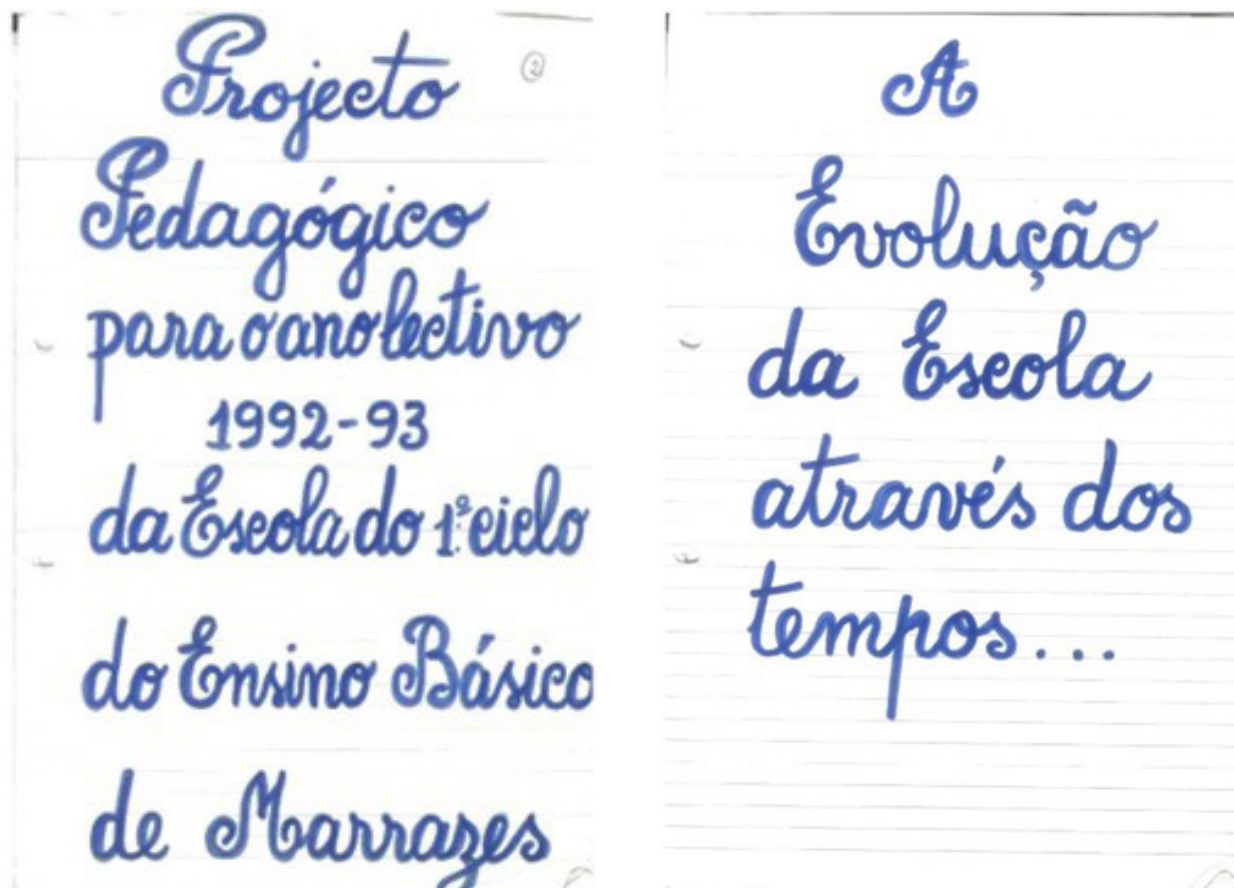 Projecto
②
Pedagógico
para o ano lectivo
1992-93
da Escola do 1º ciclo
do Ensino Básico
de Marrazes
A
Evolução
da Escola
através dos
tempos...